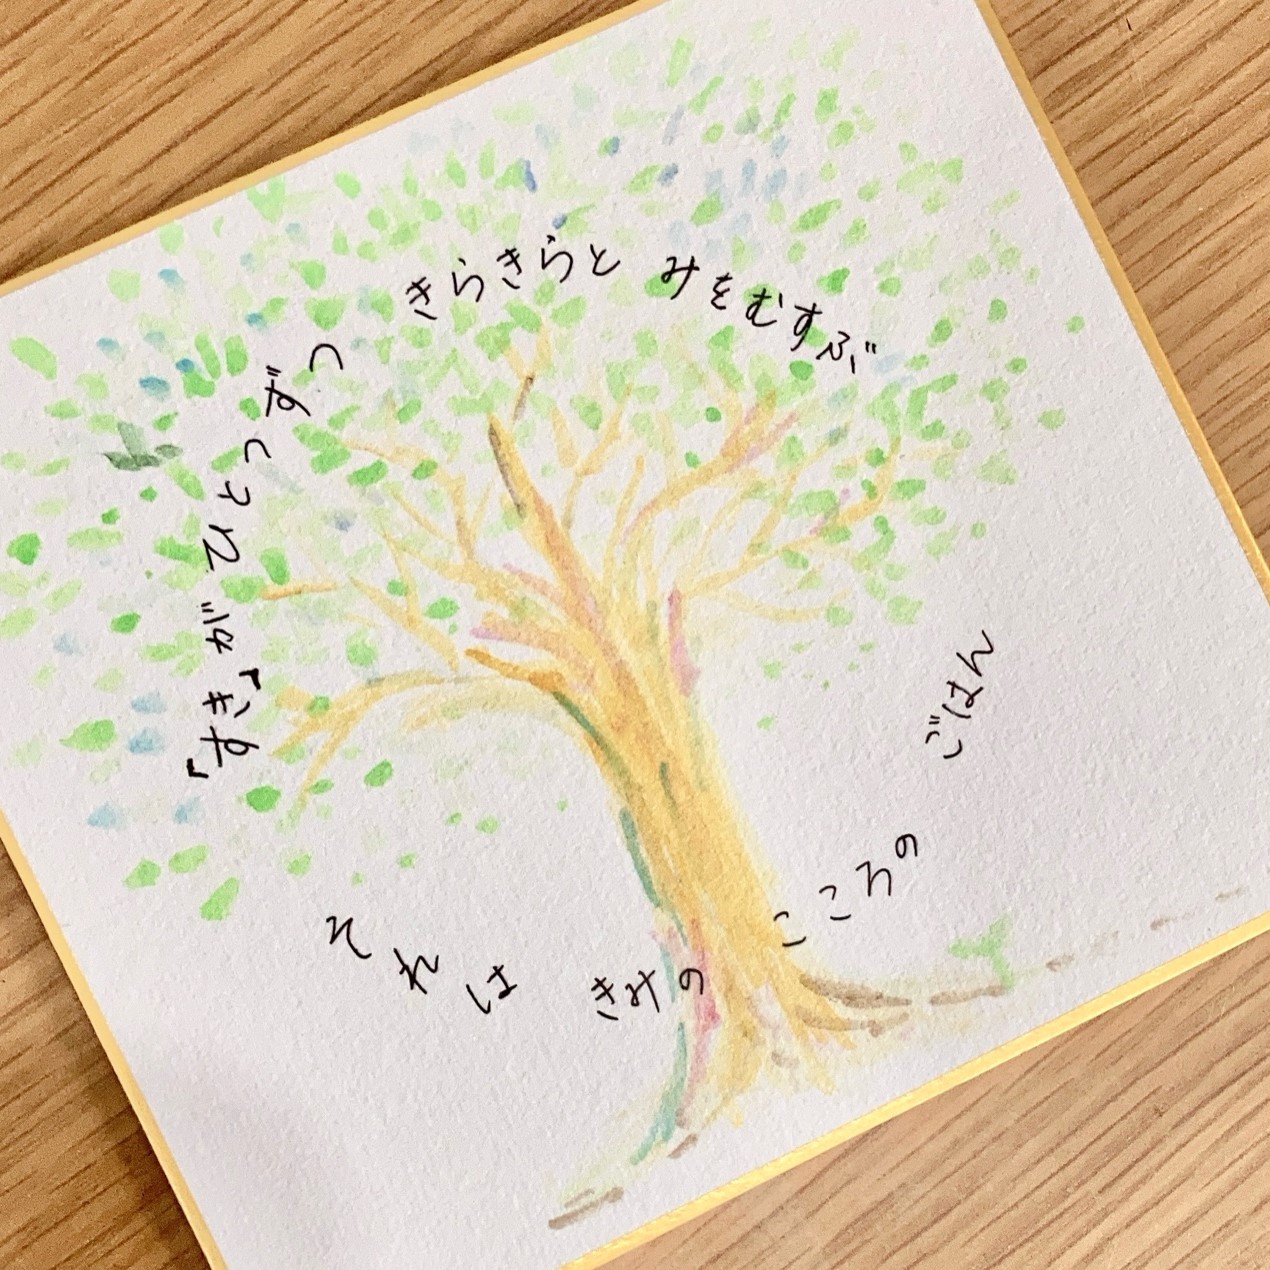 「すき」が ひとつ ずつ きらきらと みをむすぶ
それは きみの こころの ごはん